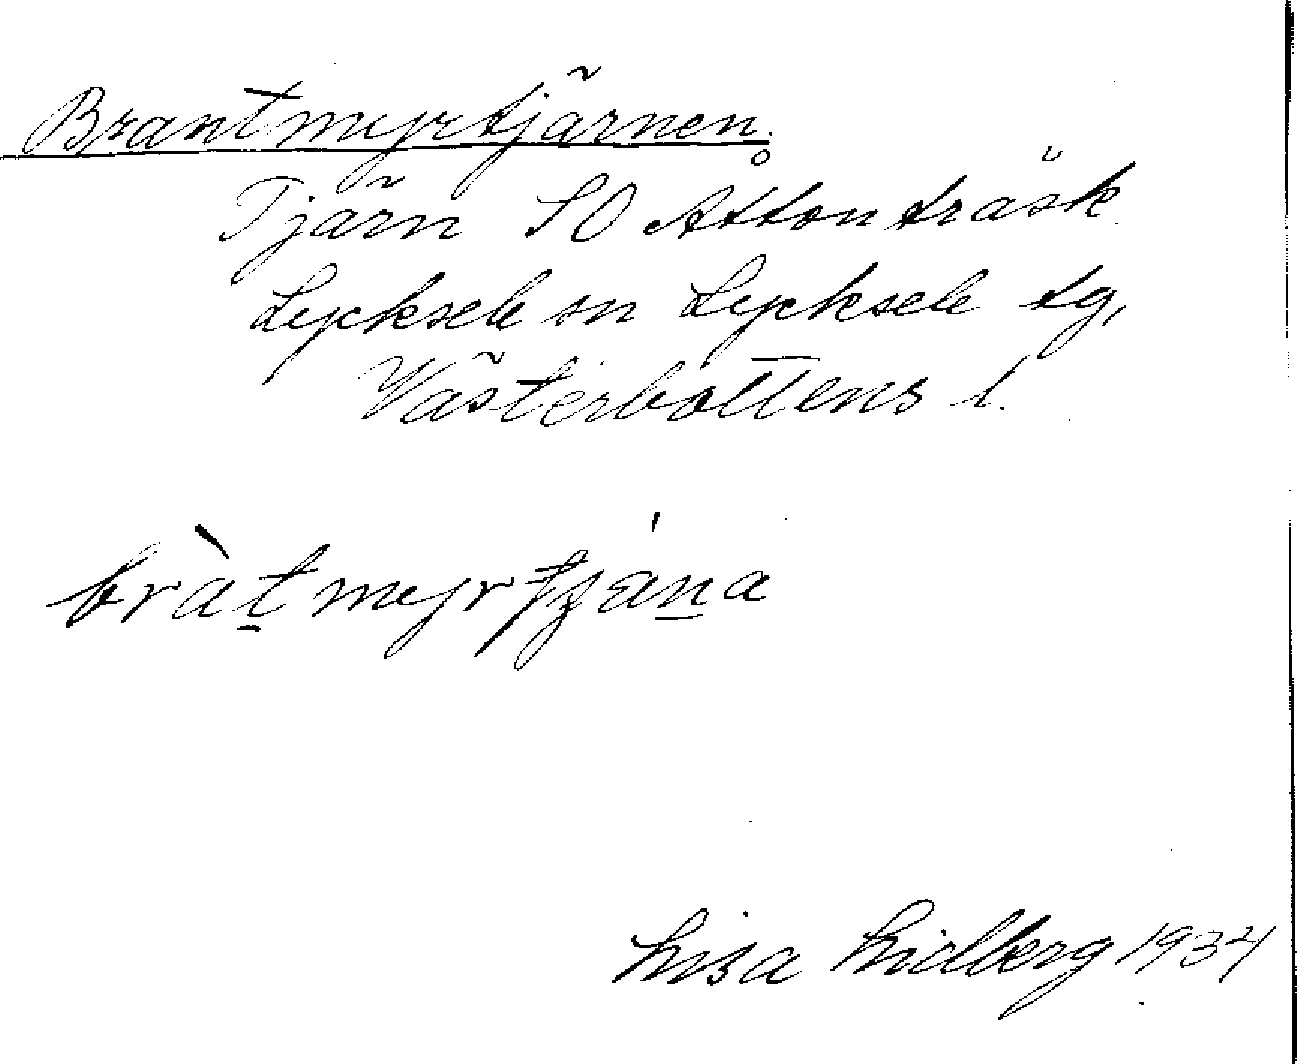 Brantmyrtjärnen.
Tjärn SO Åttonträsk
Lycksele sn Lycksele tg,
Västerbottens l.
bràt̠myrtjạ́n̠a
Lisa Lidberg 1934